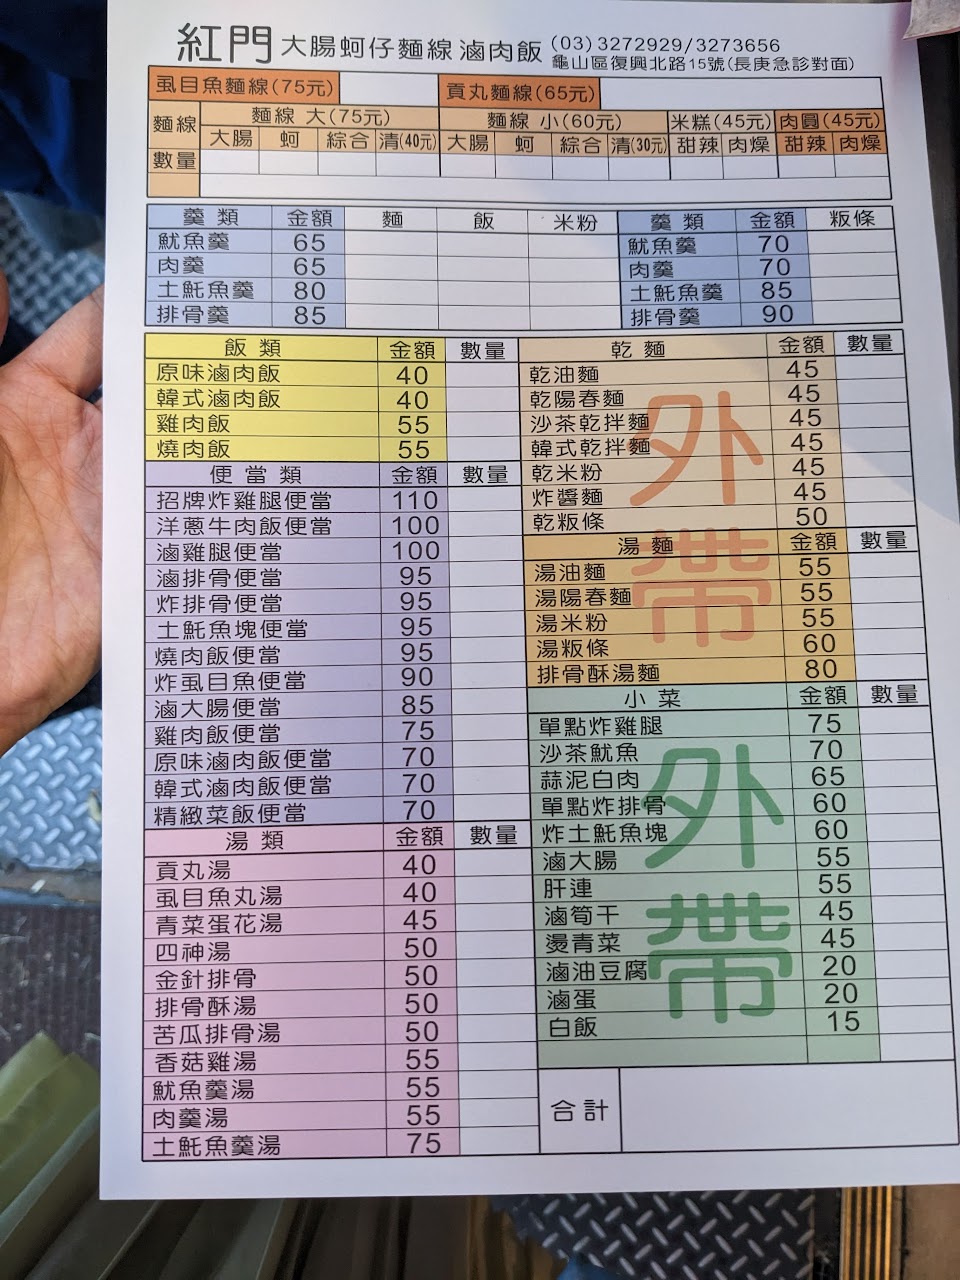 紅門 大腸蚵仔麵線 滷肉飯 (03)3272929/3273656
龜山區復興北路15號(長庚急診對面)
虱目魚麵線(75元) 貢丸麵線(65元)
麵線 麵線 大(75元) 麵線 小(60元) 米糕(45元) 肉圓(45元)
大腸 蚵 綜合 清(40元) 大腸 蚵 綜合 清(30元) 甜辣 肉燥 甜辣 肉燥
數量
羹類 金額 麵 飯 米粉 羹類 金額 粄條
魷魚羹 65 魷魚羹 70
肉羹 65 肉羹 70
土魠魚羹 80 土魠魚羹 85
排骨羹 85 排骨羹 90
飯類 金額 數量
原味滷肉飯 40
韓式滷肉飯 40
雞肉飯 55
燒肉飯 55
便當類 金額 數量
招牌炸雞腿便當 110
洋蔥牛肉飯便當 100
滷雞腿便當 100
滷排骨便當 95
炸排骨便當 95
土魠魚塊便當 95
燒肉飯便當 95
炸虱目魚便當 90
滷大腸便當 85
雞肉飯便當 75
原味滷肉飯便當 70
韓式滷肉飯便當 70
精緻菜飯便當 70
湯類 金額 數量
貢丸湯 40
虱目魚丸湯 40
青菜蛋花湯 45
四神湯 50
金針排骨 50
排骨酥湯 50
苦瓜排骨湯 50
香菇雞湯 55
魷魚羹湯 55
肉羹湯 55
土魠魚羹湯 75
乾麵 金額 數量
乾油麵 45
乾陽春麵 45
沙茶乾拌麵 45
韓式乾拌麵 45
乾米粉 45
炸醬麵 45
乾粄條 50
湯麵 金額 數量
湯油麵 55
湯陽春麵 55
湯米粉 55
湯粄條 60
排骨酥湯麵 80
外帶
小菜 金額 數量
單點炸雞腿 75
沙茶魷魚 70
蒜泥白肉 65
單點炸排骨 60
炸土魠魚塊 60
滷大腸 55
肝連 55
滷筍干 45
燙青菜 45
滷油豆腐 20
滷蛋 20
白飯 15
外帶
合計